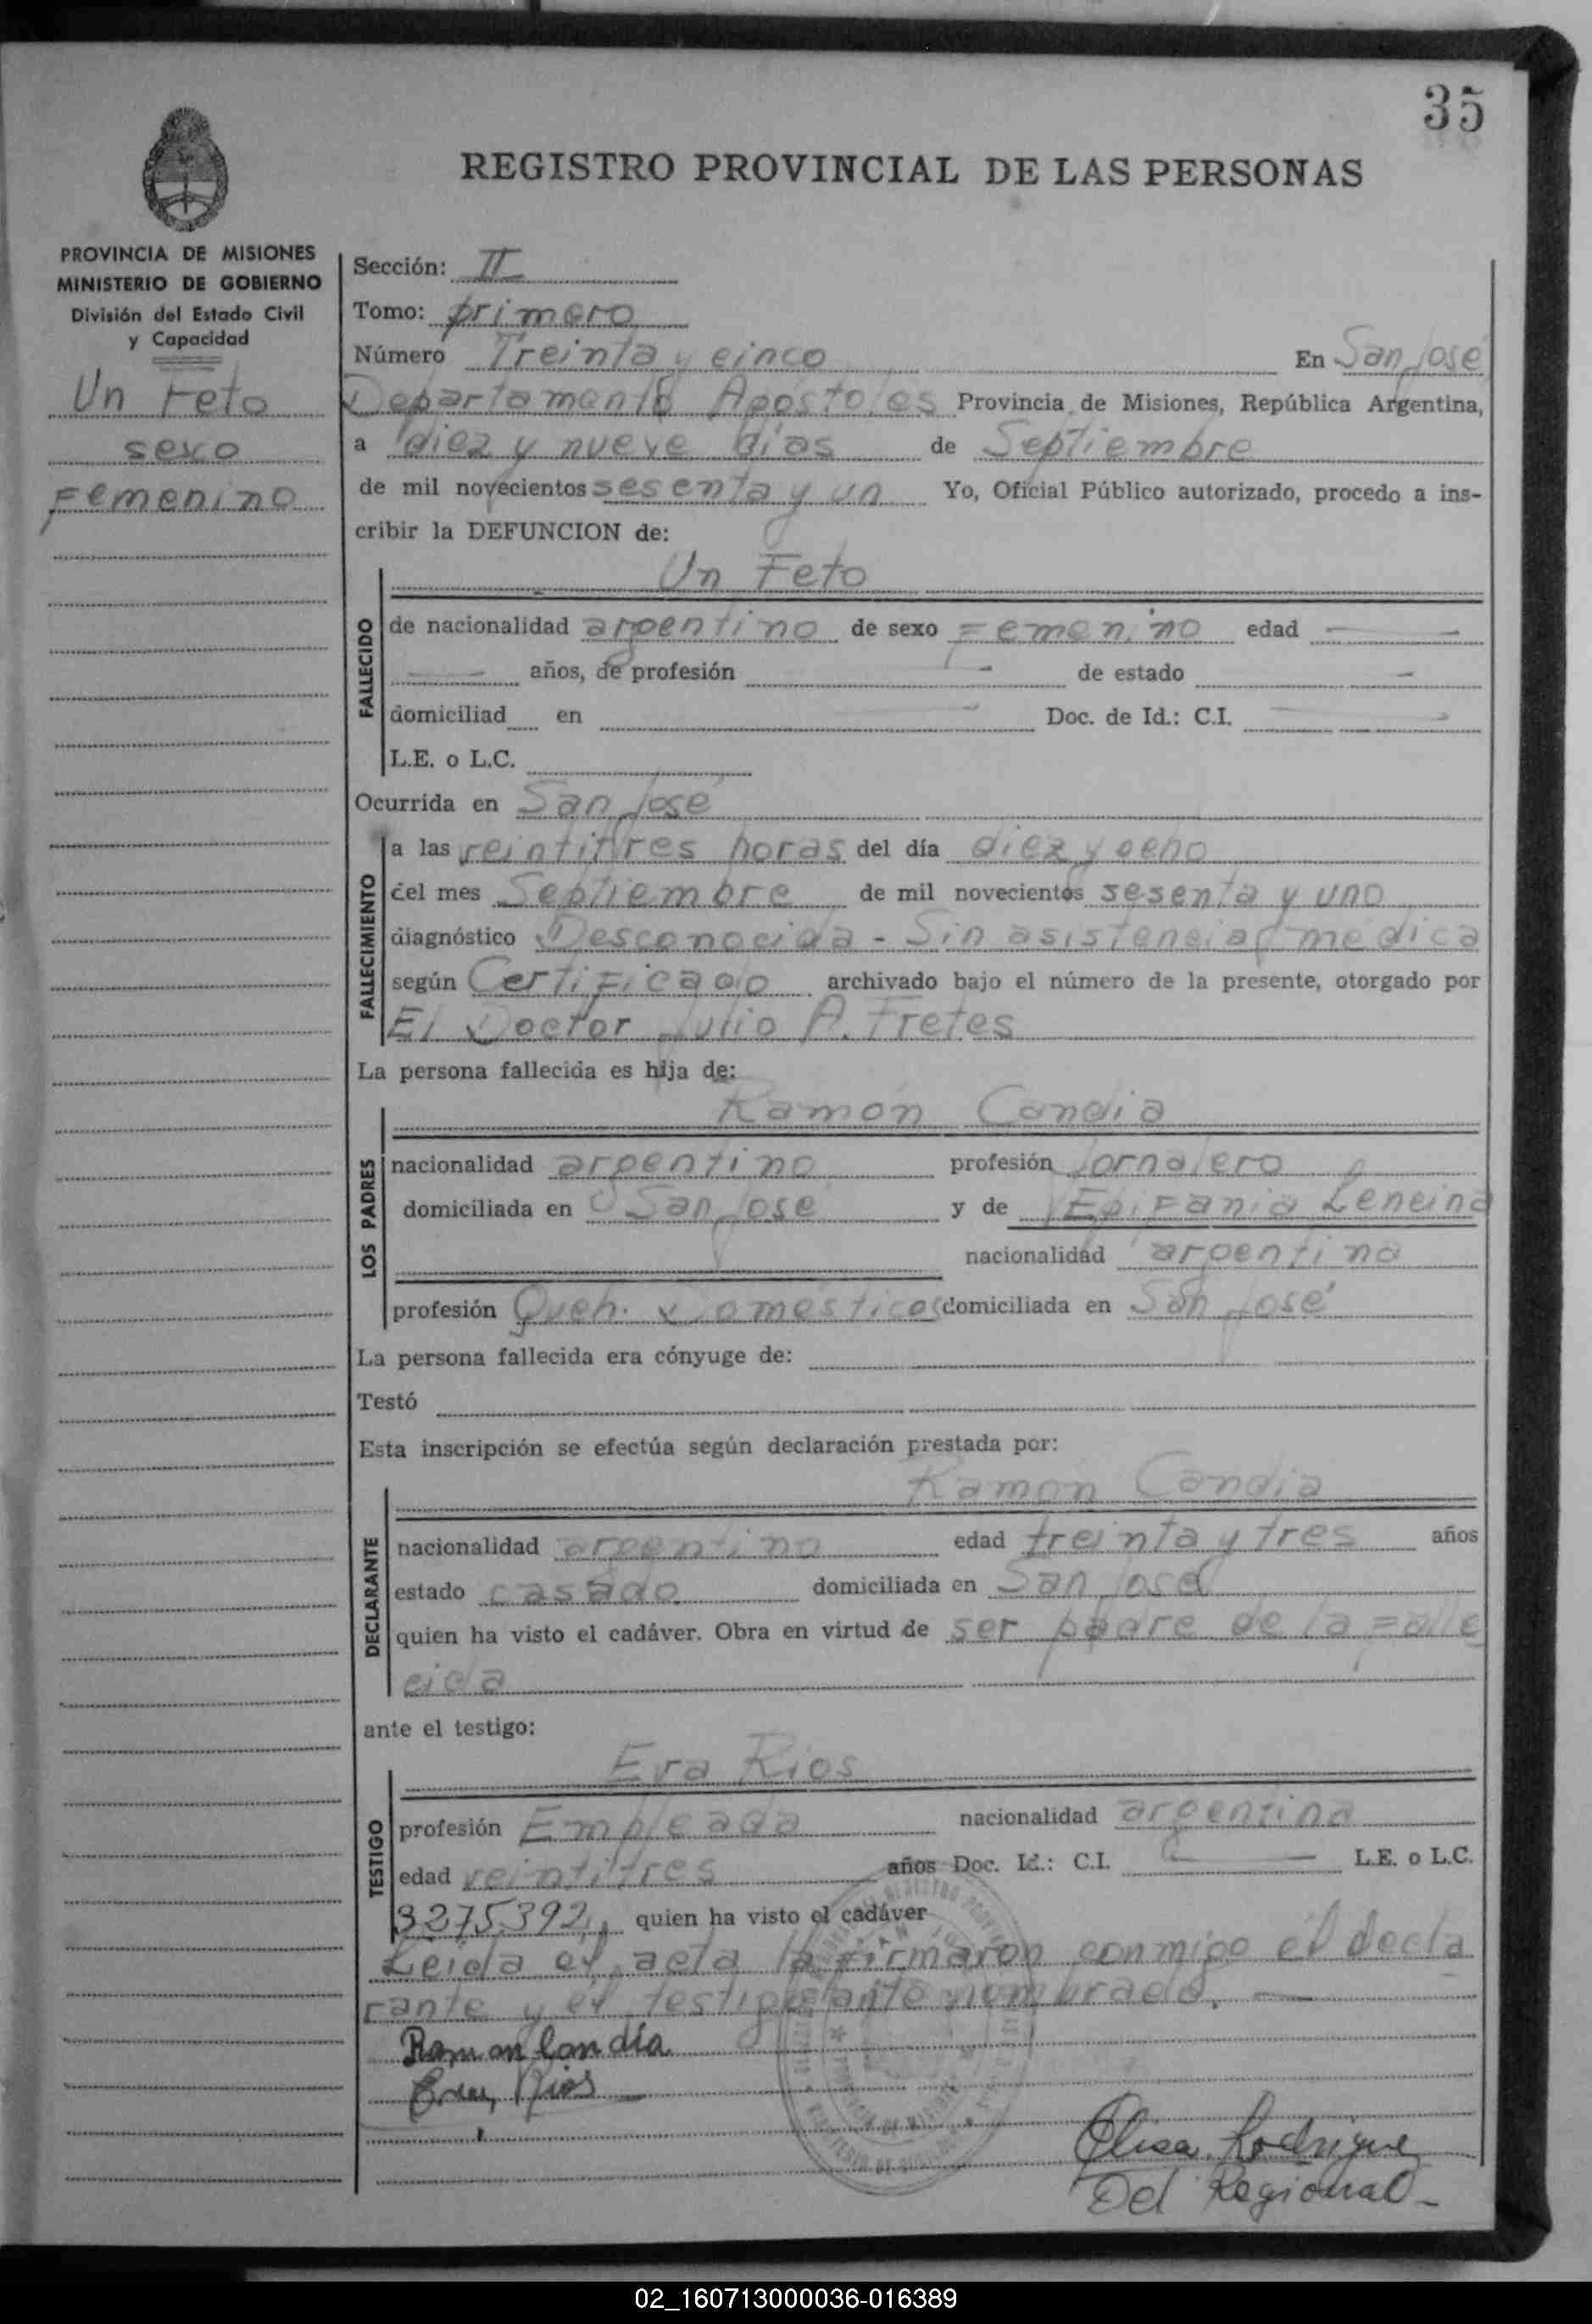 35
REGISTRO PROVINCIAL DE LAS PERSONAS
PROVINCIA DE MISIONES
MINISTERIO DE GOBIERNO
División del Estado Civil
y Capacidad
Un Feto
sexo
Femenino
Sección: II
Tomo: primero
Número Treinta y cinco En San José
Departamento Apóstoles Provincia de Misiones, República Argentina,
a diez y nueve días de Septiembre
de mil novecientos sesenta y un Yo, Oficial Público autorizado, procedo a ins-
cribir la DEFUNCION de:
Un Feto
FALLECIDO
de nacionalidad argentino de sexo Femenino edad —
— años, de profesión — de estado —
domiciliad en — Doc. de Id.: C.I. —
L.E. o L.C.
Ocurrida en San José
FALLECIMIENTO
a las veintitres horas del día diez y ocho
del mes Septiembre de mil novecientos sesenta y uno
diagnóstico Desconocida - Sin asistencia médica
según Certificado archivado bajo el número de la presente, otorgado por
El Doctor Julio A. Fretes
La persona fallecida es hija de:
LOS PADRES
Ramón Candia
nacionalidad argentino profesión Jornalero
domiciliada en San José y de Epifania Lencina
nacionalidad argentina
profesión Queh. Domésticos domiciliada en San José
La persona fallecida era cónyuge de:
Testó
Esta inscripción se efectúa según declaración prestada por:
DECLARANTE
Ramón Candia
nacionalidad argentino edad treinta y tres años
estado casado domiciliada en San José
quien ha visto el cadáver. Obra en virtud de ser padre de la falle
cida
ante el testigo:
TESTIGO
Eva Rios
profesión Empleada nacionalidad argentina
edad veintitres años Doc. Id.: C.I. — L.E. o L.C.
3275392, quien ha visto el cadáver
Leída el acta la firmaron conmigo el decla
rante y el testigo ante nombrado. —
Ramon Candia
Eva Rios
Elisa Rodrigue
Del Regional-
02_160713000036-016389